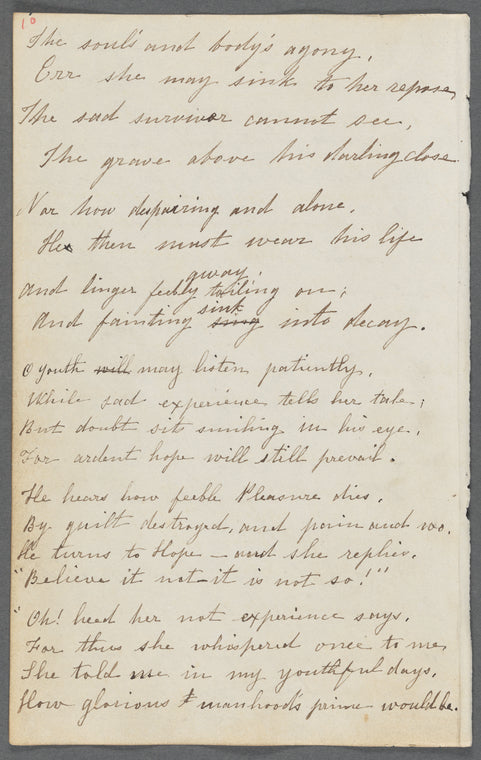 10
The soul's and body's agony,
Err she may sink to her repose,
The sad survivor cannot see,
The grave above his darling close
Nor how despairing and alone,
He then must wear his life
away,
And linger feebly toiling on;
sink
And fainting sing into decay.
O youth will may listen patiently,
While sad experience tells her tale;
But doubt sits smiling in his eye,
For ardent hope will still prevail.
He hears how feeble Pleasure dies,
By guilt destroyed, and pain and wo.
He turns to Hope – and she replies.
"Believe it not – it is not so!"
"Oh! heed her not experience says,
For thus she whispered once to me,
She told me in my youthful days,
How glorious manhood's prime would be.